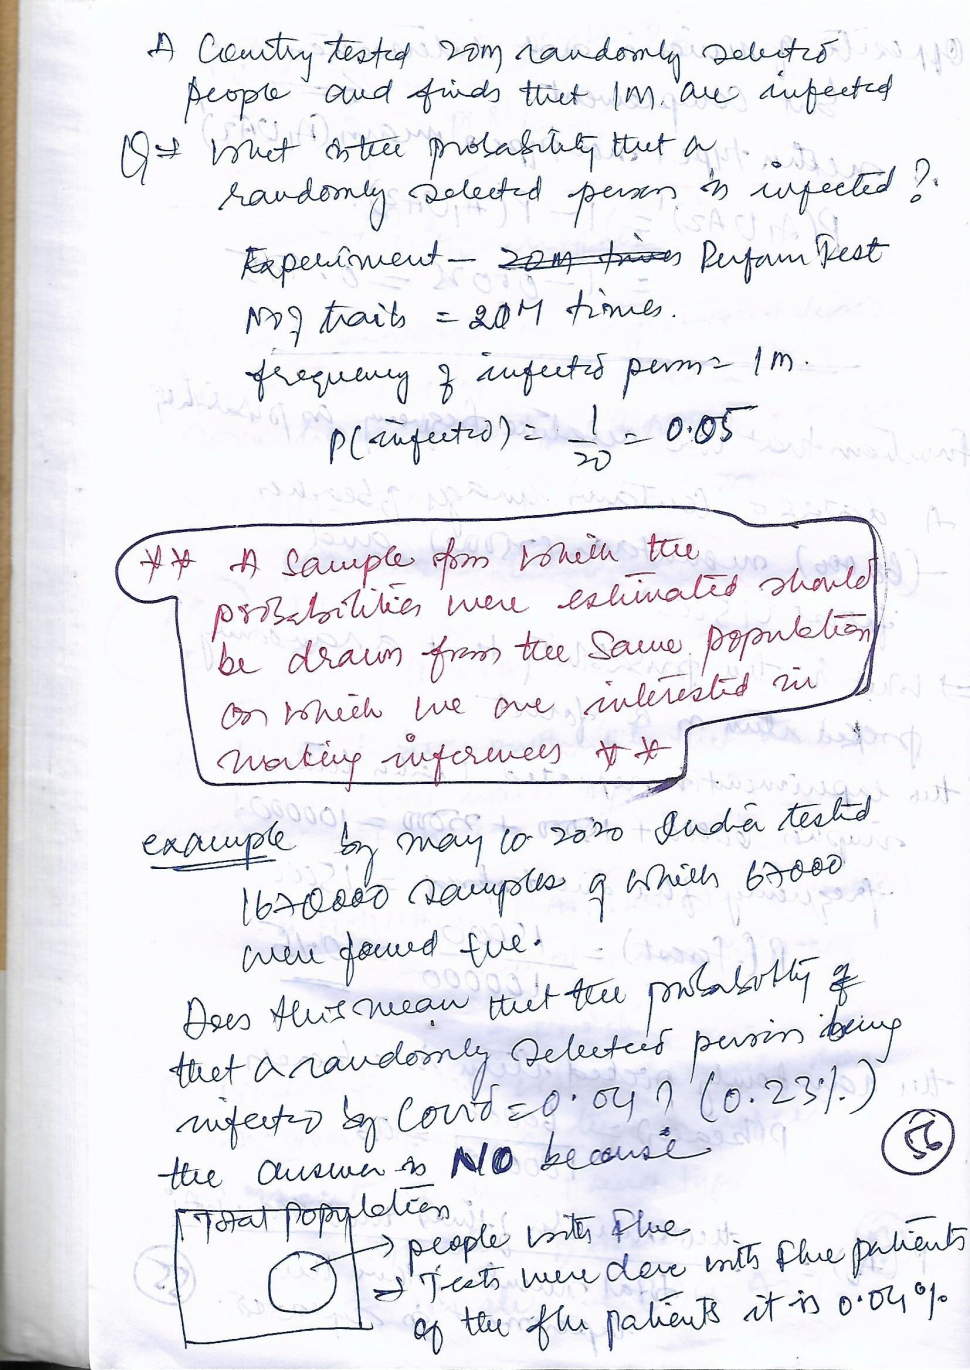 A Country tested 20m randomly selected
people and finds that 1M. are infected
Q⇒ What is the probability that a
randomly selected person is infected ?
Experiment — 20M times Perform Test
No of trails = 20M times.
frequency of infected person = 1M.
P(infected) = 1/20 = 0.05
** A Sample from which the
probabilities were estimated should
be drawn from the Same population
on which we are interested in
making inferences **
example by may 10 2020 India tested
1670000 samples of which 67000
were found +ve.
Does this mean that the probability of
that a randomly selected person is being
infected by Covid = 0.04 ? (0.23%)
the answer is NO because
56
Total population
→ people with Flue
→ Tests were done with Flue patients
of the flu patients it is 0.04%